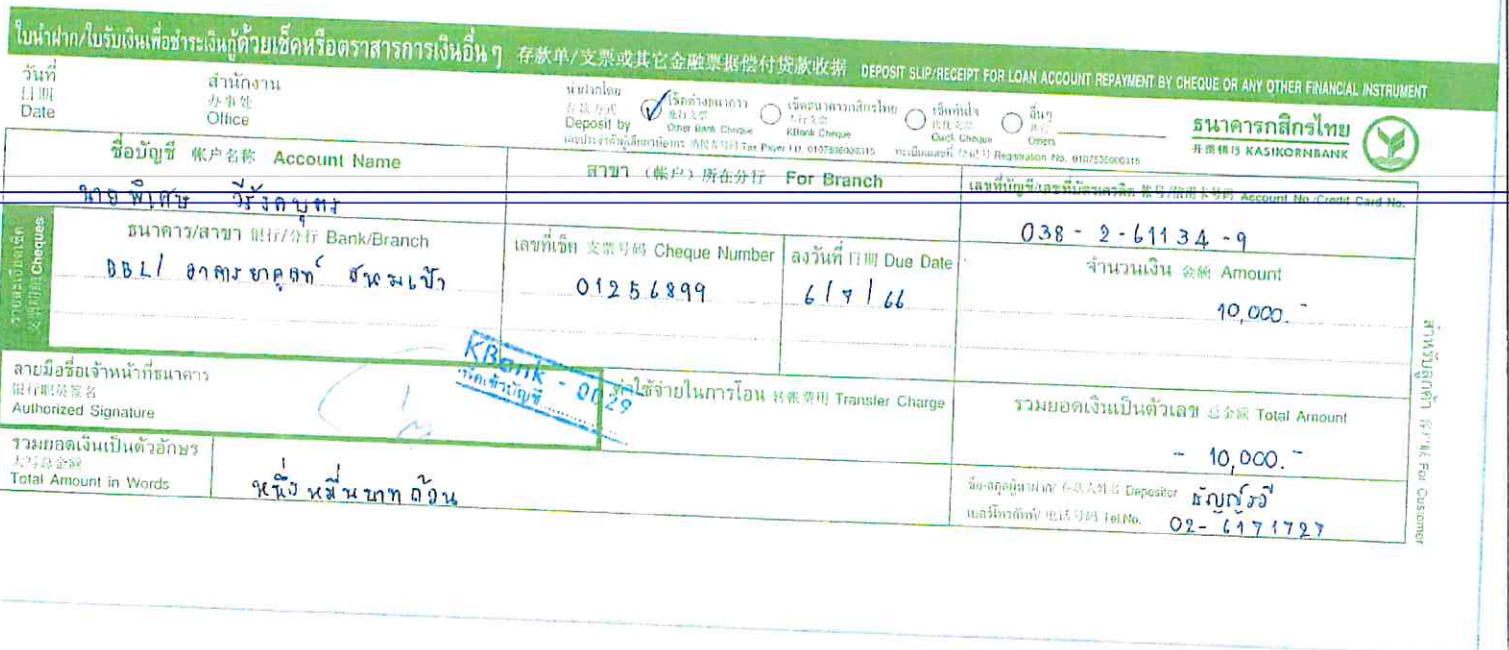 ใบนำฝาก/ใบรับเงินเพื่อชำระเงินกู้ด้วยเช็คหรือตราสารการเงินอื่น ๆ 存款单/支票或其它金融票据偿付贷款收据 DEPOSIT SLIP/RECEIPT FOR LOAN ACCOUNT REPAYMENT BY CHEQUE OR ANY OTHER FINANCIAL INSTRUMENT
วันที่ 日期 Date
สำนักงาน 办事处 Office
นำฝากโดย 存款方式 Deposit by
เช็คต่างธนาคาร 他行支票 Other Bank Cheque
เช็คธนาคารกสิกรไทย 本行支票 KBank Cheque
เช็คทันใจ Quick Cheque
อื่นๆ 其它 Others
ธนาคารกสิกรไทย
开泰银行 KASIKORNBANK
เลขประจำตัวผู้เสียภาษีอากร Tax Payer I.D. 0107536000315 ทะเบียนเลขที่ 登记号 Registration No. 0107536000315
ชื่อบัญชี 帐户名称 Account Name
สาขา (帐户) 所在分行 For Branch
เลขที่บัญชี/เลขที่บัตรเครดิต 帐号/信用卡号码 Account No./Credit Card No.
นายพิเศษ
038-2-61134-9
รายละเอียดเช็ค 支票明细 Cheques
ธนาคาร/สาขา 银行/分行 Bank/Branch
เลขที่เช็ค 支票号码 Cheque Number
ลงวันที่ 日期 Due Date
จำนวนเงิน 金额 Amount
BBL/ อาคาร สนามเป้า
01256899
6/7/66
10,000.-
ลายมือชื่อเจ้าหน้าที่ธนาคาร
银行职员签名
Authorized Signature
KBank - 0029
เช็คเข้าบัญชี
ค่าใช้จ่ายในการโอน 转帐费用 Transfer Charge
รวมยอดเงินเป็นตัวเลข 总金额 Total Amount
- 10,000.-
รวมยอดเงินเป็นตัวอักษร
大写总金额
Total Amount in Words
หนึ่งหมื่นบาทถ้วน
ชื่อ-สกุลผู้นำฝาก/ 存款人姓名 Depositor ธัญญ์รวี
เบอร์โทรศัพท์/ 电话号码 Tel.No. 02-6171727
สำหรับลูกค้า 客户联 For Customer